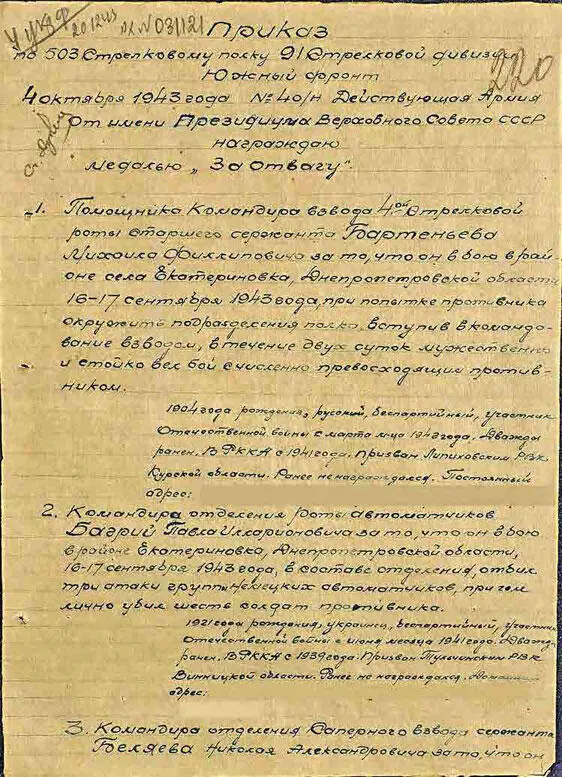 20.12.43
№ 031121
Приказ
220
по 503 Стрелковому полку 91 Стрелковой дивизии
Южный фронт
4 октября 1943 года № 40/н Действующая Армия
От имени Президиума Верховного Совета СССР
награждаю
медалью „За Отвагу".
1. Помощника Командира взвода 4-ой Стрелковой
роты Старшего сержанта Бартеньева
Михаила Филлиповича за то, что он в бою в рай-
оне села Екатериновка, Днепропетровской области
16-17 сентября 1943 года, при попытке противника
окружить подразделения полка, вступив в командо-
вание взводом, в течение двух суток мужественно
и стойко вел бой с численно превосходящим против-
ником.
1904 года рождения, русский, беспартийный, участник
Отечественной войны с марта м-ца 1942 года. Дважды
ранен. В РККА с 1941 года. Призван РВК
Курской области. Ранее не награждался. Постоянный
адрес:
2. Командира отделения роты автоматчиков
Багрий Павла Илларионовича за то, что он в бою
в районе Екатериновка, Днепропетровской области,
16-17 сентября 1943 года, в составе отделения, отбил
три атаки групп немецких автоматчиков, при чем
лично убил шесть солдат противника.
1921 года рождения, украинец, беспартийный, участник
Отечественной войны с июня месяца 1941 года. Дважд.
ранен. В РККА с 1939 года. Призван Тульчинским РВК
Винницкой области. Ранее не награждался.
адрес:
3. Командира отделения Саперного взвода сержанта
Беляева Николая Александровича за то, что он